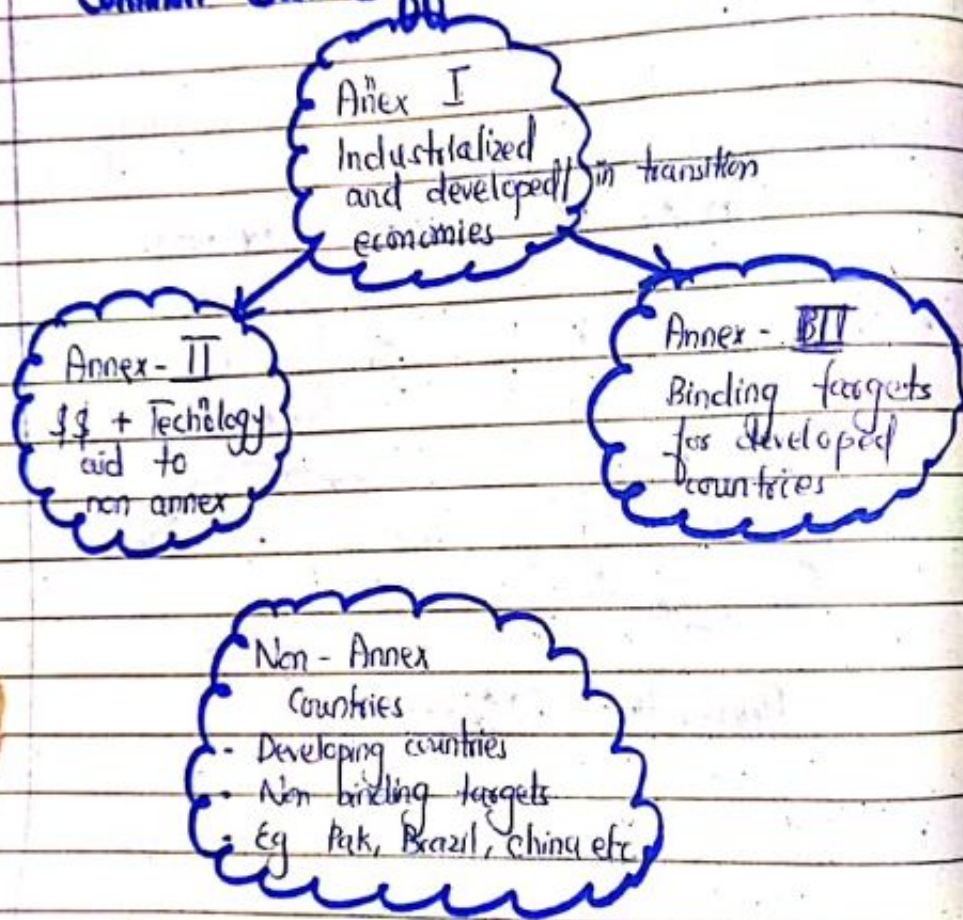 Annex I
Industrialized
and developed/ in transition
economies
Annex - II
$$ + Technology
aid to
non annex
Annex -
Binding targets
for developed
countries
Non - Annex
Countries
- Developing countries
- Non binding targets
- Eg Pak, Brazil, china etc